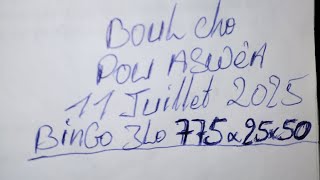 Boul cho
Pou ASWèA
11 Juillet 2025
BinGo 3Lo 775x25x50